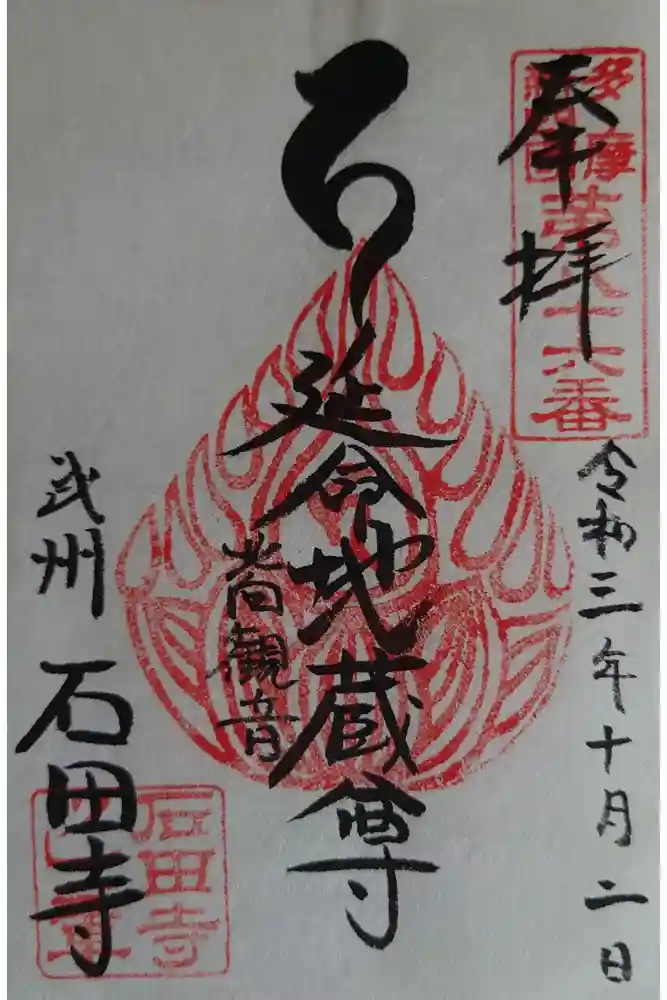 奉拝
多摩
第六十六番
令和三年十月二日
延命地蔵尊
観音
武州
石田寺
石田寺